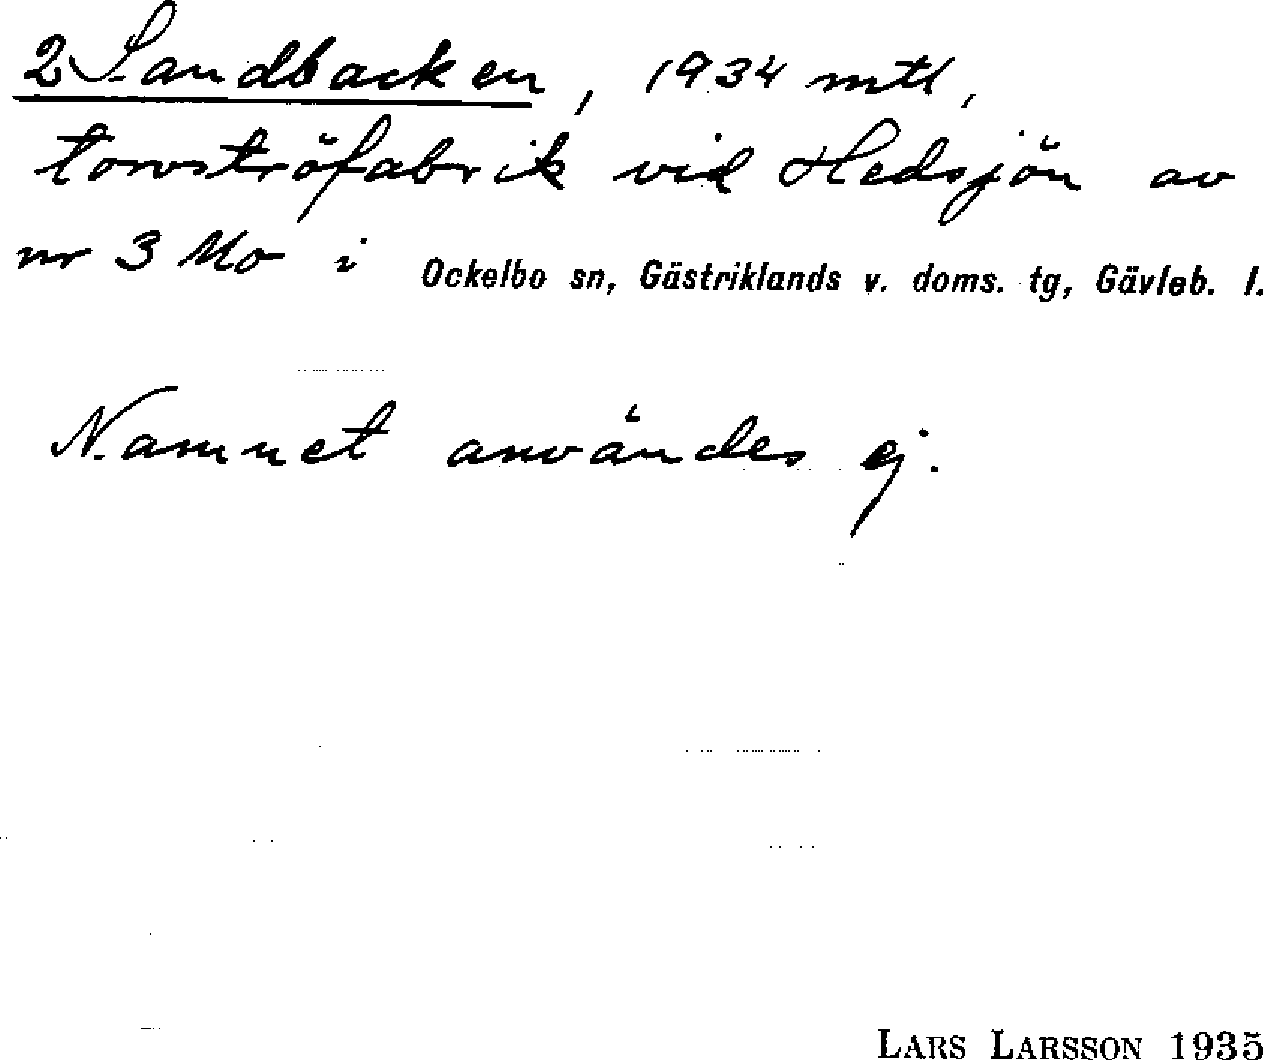 2 Sandbacken, 1934 mtl,
torvströfabrik vid Hedsjön av
nr 3 Mo i Ockelbo sn, Gästriklands v. doms. tg, Gävleb. l.
Namnet användes ej.
LARS LARSSON 1935